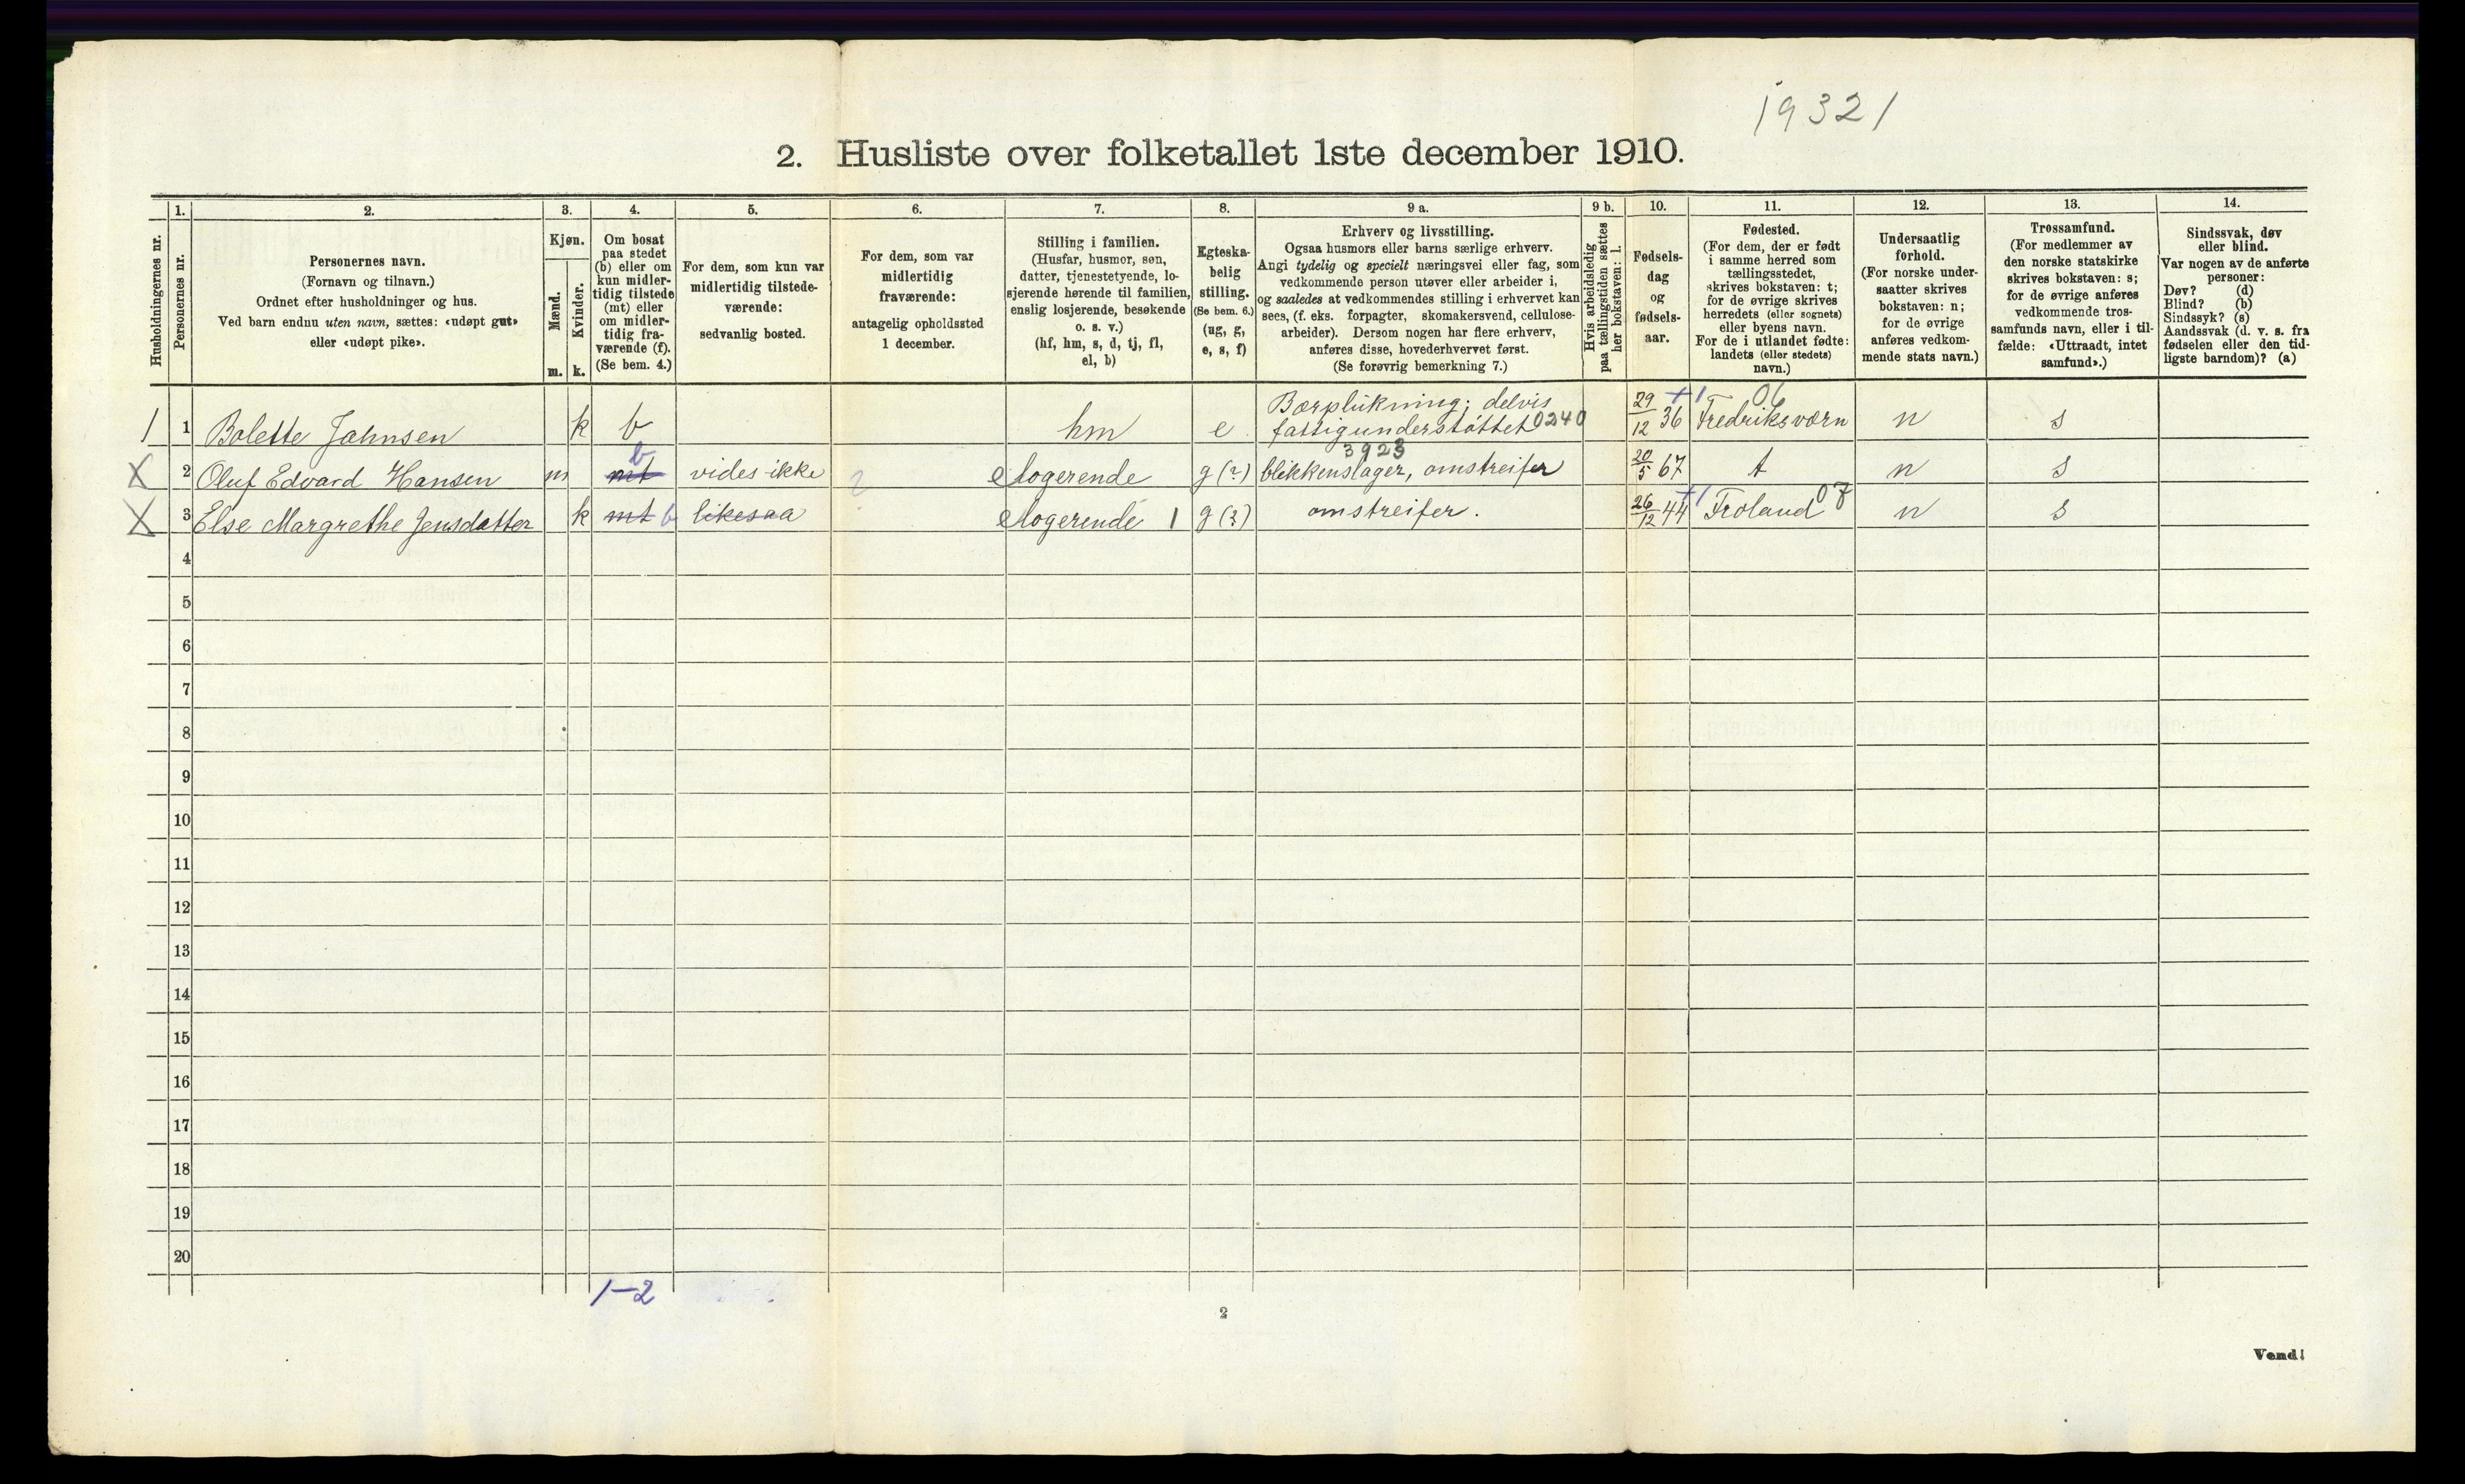 19321
2. Husliste over folketallet 1ste december 1910.
Husholdningernes nr.
1.
Personernes nr.
2.
Personernes navn.
(Fornavn og tilnavn.)
Ordnet efter husholdninger og hus.
Ved barn endnu uten navn, sættes: «udøpt gut»
eller «udøpt pike».
3.
Kjøn.
Mænd.
Kvinder.
m. k.
4.
Om bosat
paa stedet
(b) eller om
kun midler-
tidig tilstede
(mt) eller
om midler-
tidig fra-
værende (f).
(Se bem. 4.)
5.
For dem, som kun var
midlertidig tilstede-
værende:
sedvanlig bosted.
6.
For dem, som var
midlertidig
fraværende:
antagelig opholdssted
1 december.
7.
Stilling i familien.
(Husfar, husmor, søn,
datter, tjenestetyende, lo-
sjerende hørende til familien,
enslig losjerende, besøkende
o. s. v.)
(hf, hm, s, d, tj, fl,
el, b)
8.
Egteska-
belig
stilling.
(Se bem. 6.)
(ug, g,
e, s, f)
9 a.
Erhverv og livsstilling.
Ogsaa husmors eller barns særlige erhverv.
Angi tydelig og specielt næringsvei eller fag, som
vedkommende person utøver eller arbeider i,
og saaledes at vedkommendes stilling i erhvervet kan
sees, (f. eks. forpagter, skomakersvend, cellulose-
arbeider). Dersom nogen har flere erhverv,
anføres disse, hovederhvervet først.
(Se forøvrig bemerkning 7.)
9 b.
Hvis arbeidsledig
paa tællingstiden sættes
her bokstaven: l.
10.
Fødsels-
dag
og
fødsels-
aar.
11.
Fødested.
(For dem, der er født
i samme herred som
tællingsstedet,
skrives bokstaven: t;
for de øvrige skrives
herredets (eller sognets)
eller byens navn.
For de i utlandet fødte:
landets (eller stedets)
navn.)
12.
Undersaatlig
forhold.
(For norske under-
saatter skrives
bokstaven: n;
for de øvrige
anføres vedkom-
mende stats navn.)
13.
Trossamfund.
(For medlemmer av
den norske statskirke
skrives bokstaven: s;
for de øvrige anføres
vedkommende tros-
samfunds navn, eller i til-
fælde: «Uttraadt, intet
samfund».)
14.
Sindssvak, døv
eller blind.
Var nogen av de anførte
personer:
Døv? (d)
Blind? (b)
Sindssyk? (s)
Aandssvak (d. v. s. fra
fødselen eller den tid-
ligste barndom)? (a)
1 1 Bolette Jahnsen k b hm e Bærplukning; delvis
fattigunderstøttet 0240 29/12 36 +1 Fredriksværn 06 n s
X 2 Oluf Edvard Hansen m mt b vides ikke ? elogerende g (?) blikkenslager, omstreifer 3923 20/5 67 t n s
X 3 Else Margrethe Jensdatter k mt b likesaa elogerende 1 g (?) omstreifer. 26/12 44 +1 Froland 07 n s
4
5
6
7
8
9
10
11
12
13
14
15
16
17
18
19
20
1-2
2
Vend!